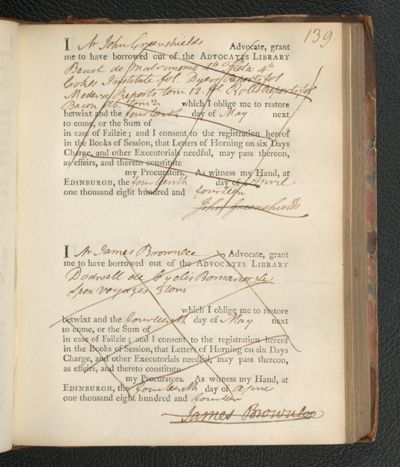 139
I Mr John Greenshields Advocate, grant
me to have borrowed out of the ADVOCATES LIBRARY
de Matrimonio 4to 4to
Cokes Institute fol. Dyers Reports fol
Modern Reports tom 12. fol Rolls Reports fol
Bacon tom 2 which I oblige me to restore
betwixt and the fourteenth day of May next
to come, or the Sum of
in case of Failzie; and I consent to the registration hereof
in the Books of Session, that Letters of Horning on six Days
Charge, and other Executorials needful, may pass thereon,
as effeirs, and thereto constitute
my Procurators. As witness my Hand, at
EDINBURGH, the fourteenth day of April
one thousand eight hundred and fourteen
John Greenshields
I Mr James Brownlee Advocate, grant
me to have borrowed out of the ADVOCATES LIBRARY
Dodwell de Cyclis Romanor
Spon voyages 3 tom
which I oblige me to restore
betwixt and the fourteenth day of May next
to come, or the Sum of
in case of Failzie; and I consent to the registration hereof
in the Books of Session, that Letters of Horning on six Days
Charge, and other Executorials needful, may pass thereon,
as effeirs, and thereto constitute
my Procurators. As witness my Hand, at
EDINBURGH, the fourteenth day of April
one thousand eight hundred and fourteen
James Brownlee